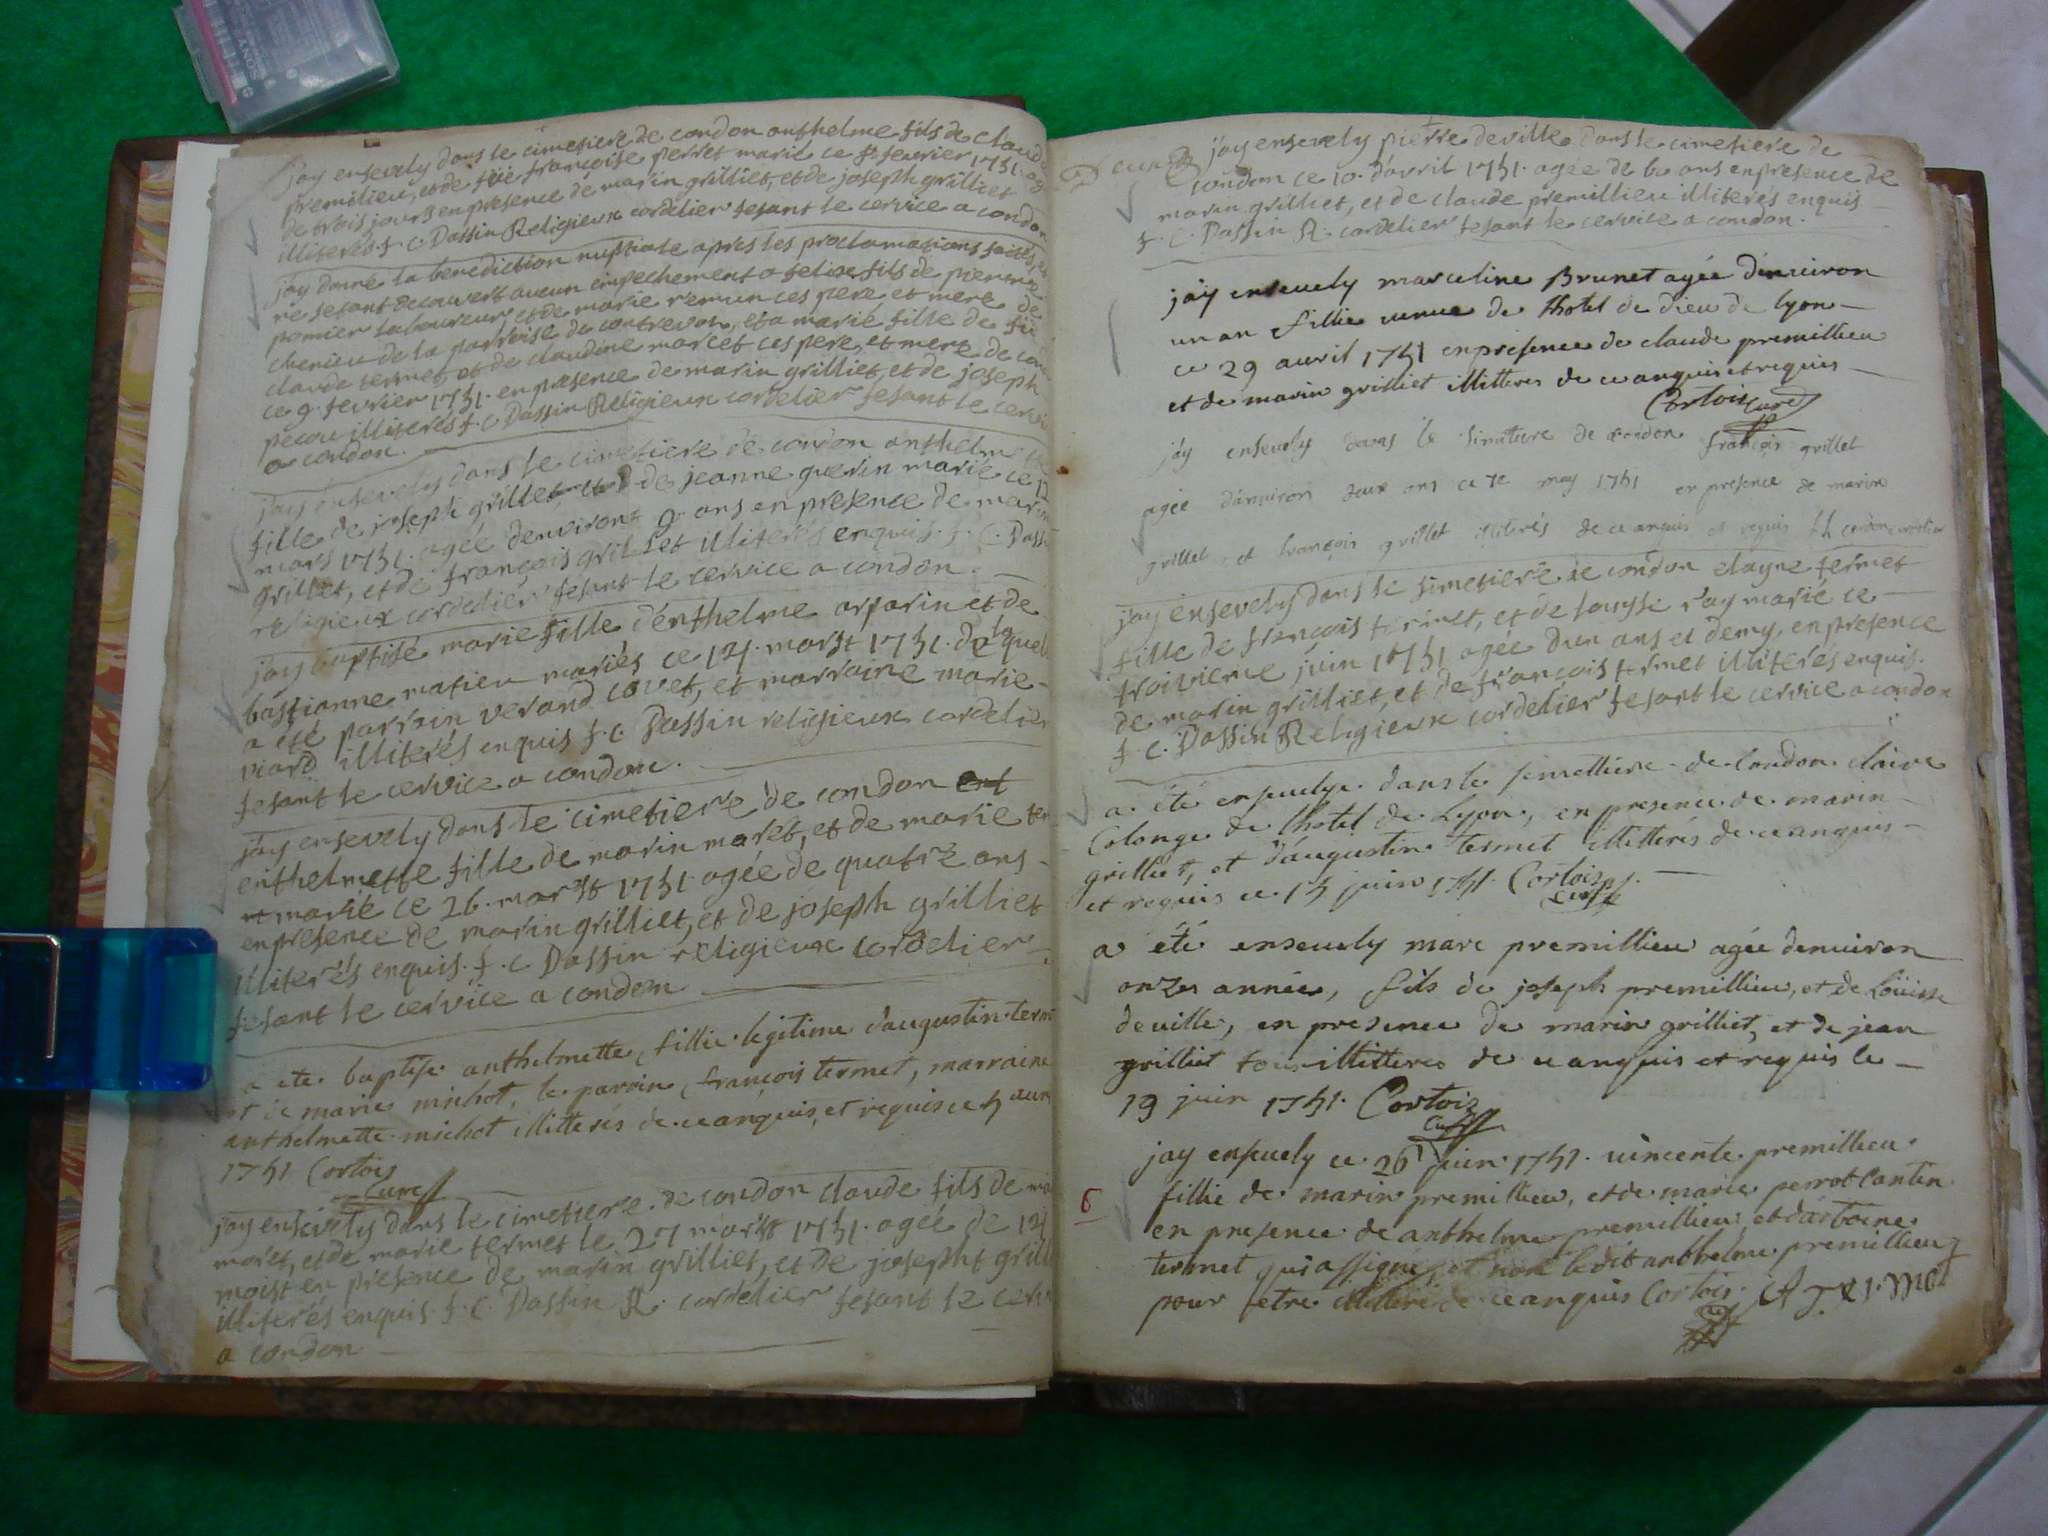 SONY
jay ensevely dans le cimetiere de condon anthelme fils de claude
premilieu, et de francoise perret marie ce fevrier 1751
de trois jours en presence de marin grilliet, et de joseph grilliet
illiterés f. c. Dassin Religieux cordelier fesant le cervice a condon
jay donné la benediction nuptiale apres les proclamations faites,
ne sestant decouvert aucun empechement a felix fils de pierre
pomier laboureur et de marie ces pere et mere de
chemieu de la parroise de contrevoz, et a marie fille de
claude termet, et de claudine marcet ces pere, et mere de con
ce 9. fevrier 1751. en presence de marin grilliet, et de joseph
pecou illiterés f. c Dassin Religieux cordelier fesant le cervi
a condon.
jay ensevely dans le cimetiere de condon anthelm
fille de joseph grillet de jeanne guerin marié ce 12
mars 1751. agée denviront 9 ans en presence de marin
grillet, et de françois grillet illiterés enquis. f. C. Dass
religieux cordelier fesant le cervice a condon.
jay baptisé marie fille d'enthelme arparin et de
bastianne matieu mariés ce 14. marst 1751. de laquel
a eté parrain verand covet, et marraine marie
viard illiterés enquis f. c. Dassin religieux cordelier
fesant le cervice a condon.
jay ensevely dans le cimetiere de condon
enthelmette fille de marin maret, et de marie ter
marié ce 26. marst 1751. agée de quatre ans
en presence de marin grilliet, et de joseph grilliet
illiterés enquis. f. c Dassin religieux cordelier
fesant le cervice a condon
a ete baptisé anthelmette fillie legitime daugustin term
et de marie michot, le parain francois termet, marraine
anthelmette michot illitterés de ce anquis, et requis ce 5 avri
1751 Cortois
Curé
jay ensevely dans le cimetiere de condon claude fils de ma
maret, et de marie termet le 27 marst 1751. agée de 14
moist en presence de marin grilliet, et de josepht grill
illiterés enquis f. C. Dassin R. cordelier fesant le cerv
a condon
jay ensevely pierre deville dans le cimetiere de
condon ce 10. d'avril 1751. agée de 60 ans en presence de
marin grilliet, et de claude premillieu illiterés enquis
f. C. Dassin R. cordelier fesant le cervice a condon.
jay enseuely marceline Brunet agée denuiron
un an fillie venue de lhotel de dieu de lyon
ce 29 auril 1751 en presence de claude premillieu
et de marin grilliet illitteres de ce anquis et requis
Cortois curé
jay enseuely dans le simitiere de condon françois grillet
agée danuiron deux ans ce 7e may 1751 en presence de marin
grillet et françois grillet illiterés de ce anquis et requis
jay ensevely dans le simetiere de condon clayne termet
fille de françois termet, et de louyse ray marié ce
troivieme juin 1751 agée dun ans et demy, en presence
de marin grilliet, et de françois termet illiterés enquis.
f. C. Dassin Religieux cordelier fesant le cervice a condon
a été enseuelye dans le simettiere de Condon claire
Colonge de lhotel de Lyon, en presence de marin
grilliet, et d'augustin termet illitterés de ce anquis
et requis ce 15 juin 1751. Cortois
curé
a été enseuely marc premillieu agée denuiron
onze années, fils de joseph premillieu, et de Loüise
deuille, en presence de marin grilliet, et de jean
grilliet tous illitteres de ce anquis et requis le
19 juin 1751. Cortois
Curé
jay enseuely ce 26 juin 1751. vincente premillieu
6 fillie de marin premillieu, et de marie perrot Cantin
en presence de anthelme premillieu, et dantoine
termet qui a signé, et non ledit anthelme premillieu
pour etre illitteré de ce anquis Cortois